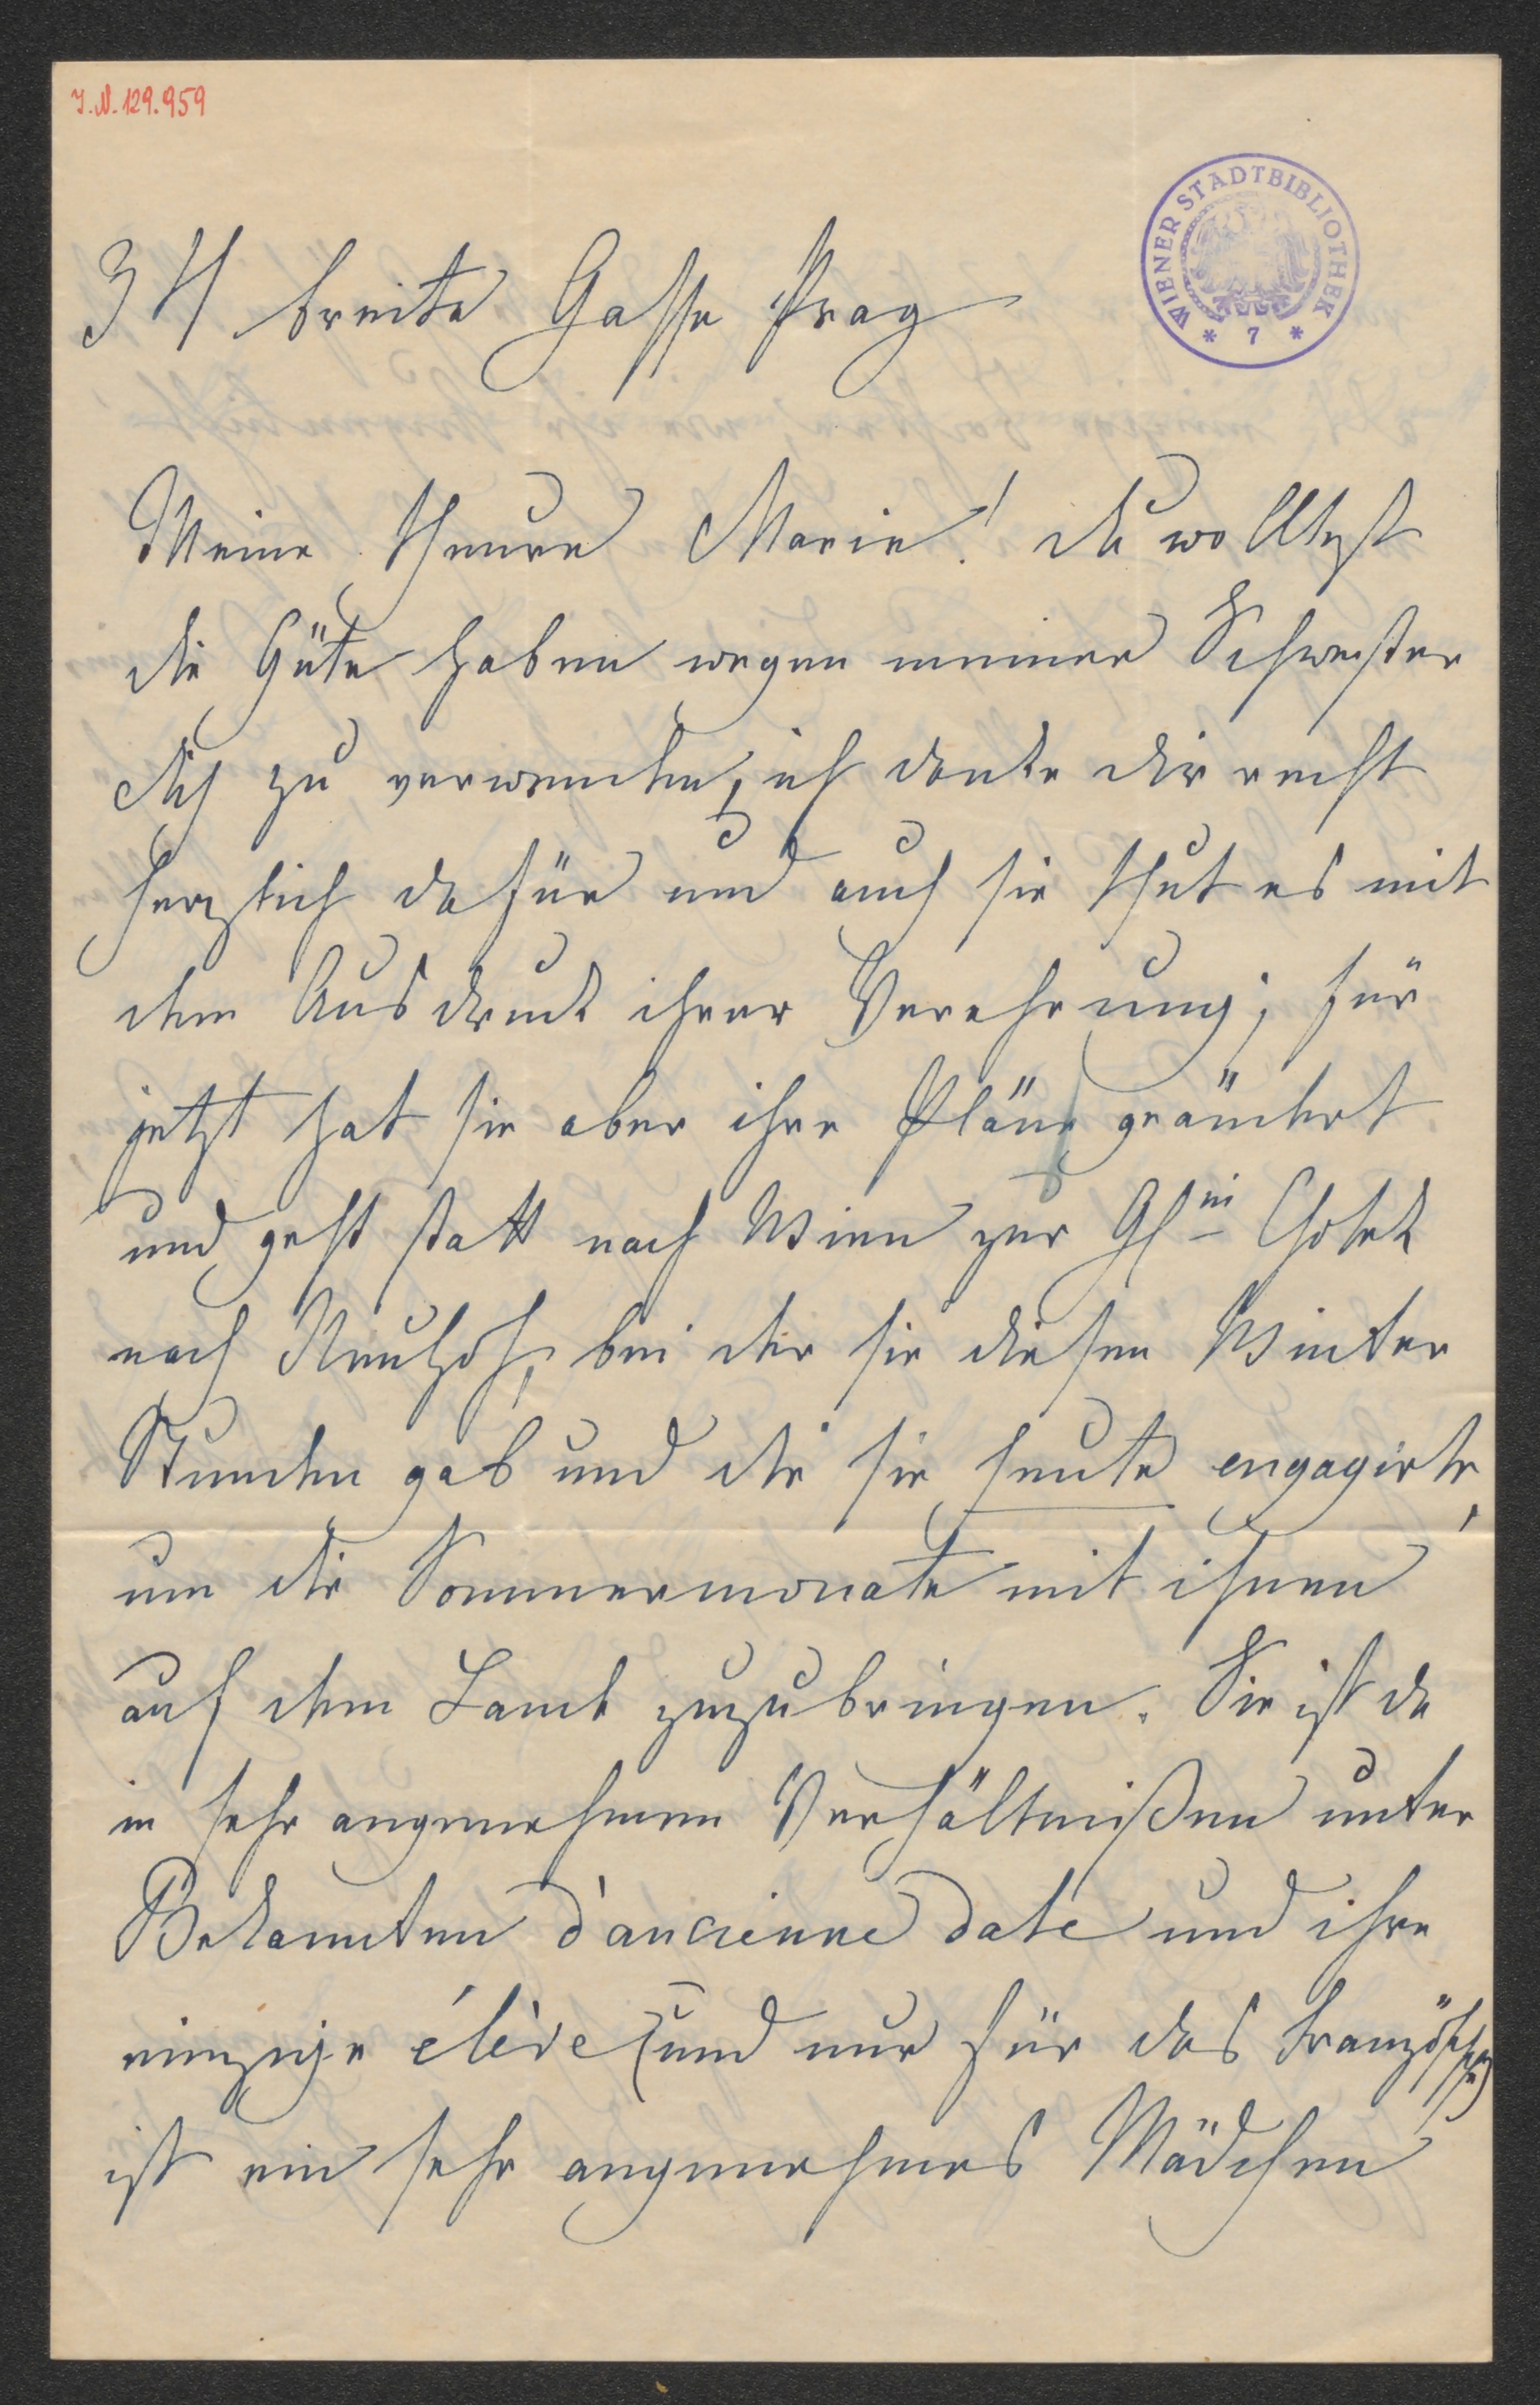 I.N. 129.959
WIENER STADTBIBLIOTHEK
* 7 *
34 breite Gasse Prag
Meine theure Marie! du wolltest
die Güte haben wegen meiner Schwester
dich zu verwenden, ich danke dir recht
herzlich dafür und auch sie thut es mit
dem Ausdruck ihrer Verehrung; für
jetzt hat sie aber ihre Pläne geändert
und geht statt nach Wien zur Gfin Chotek
nach Neuhof, bei der sie diesen Winter
Stunden gab und die sie heute engagirte,
um die Sommermonate mit ihnen
auf dem Lande zuzubringen. Sie ist da
in sehr angenehmen Verhältnißen unter
Bekannten d'ancienne date und ihre
einzige élève (und nur für das französische)
ist ein sehr angenehmes Mädchen